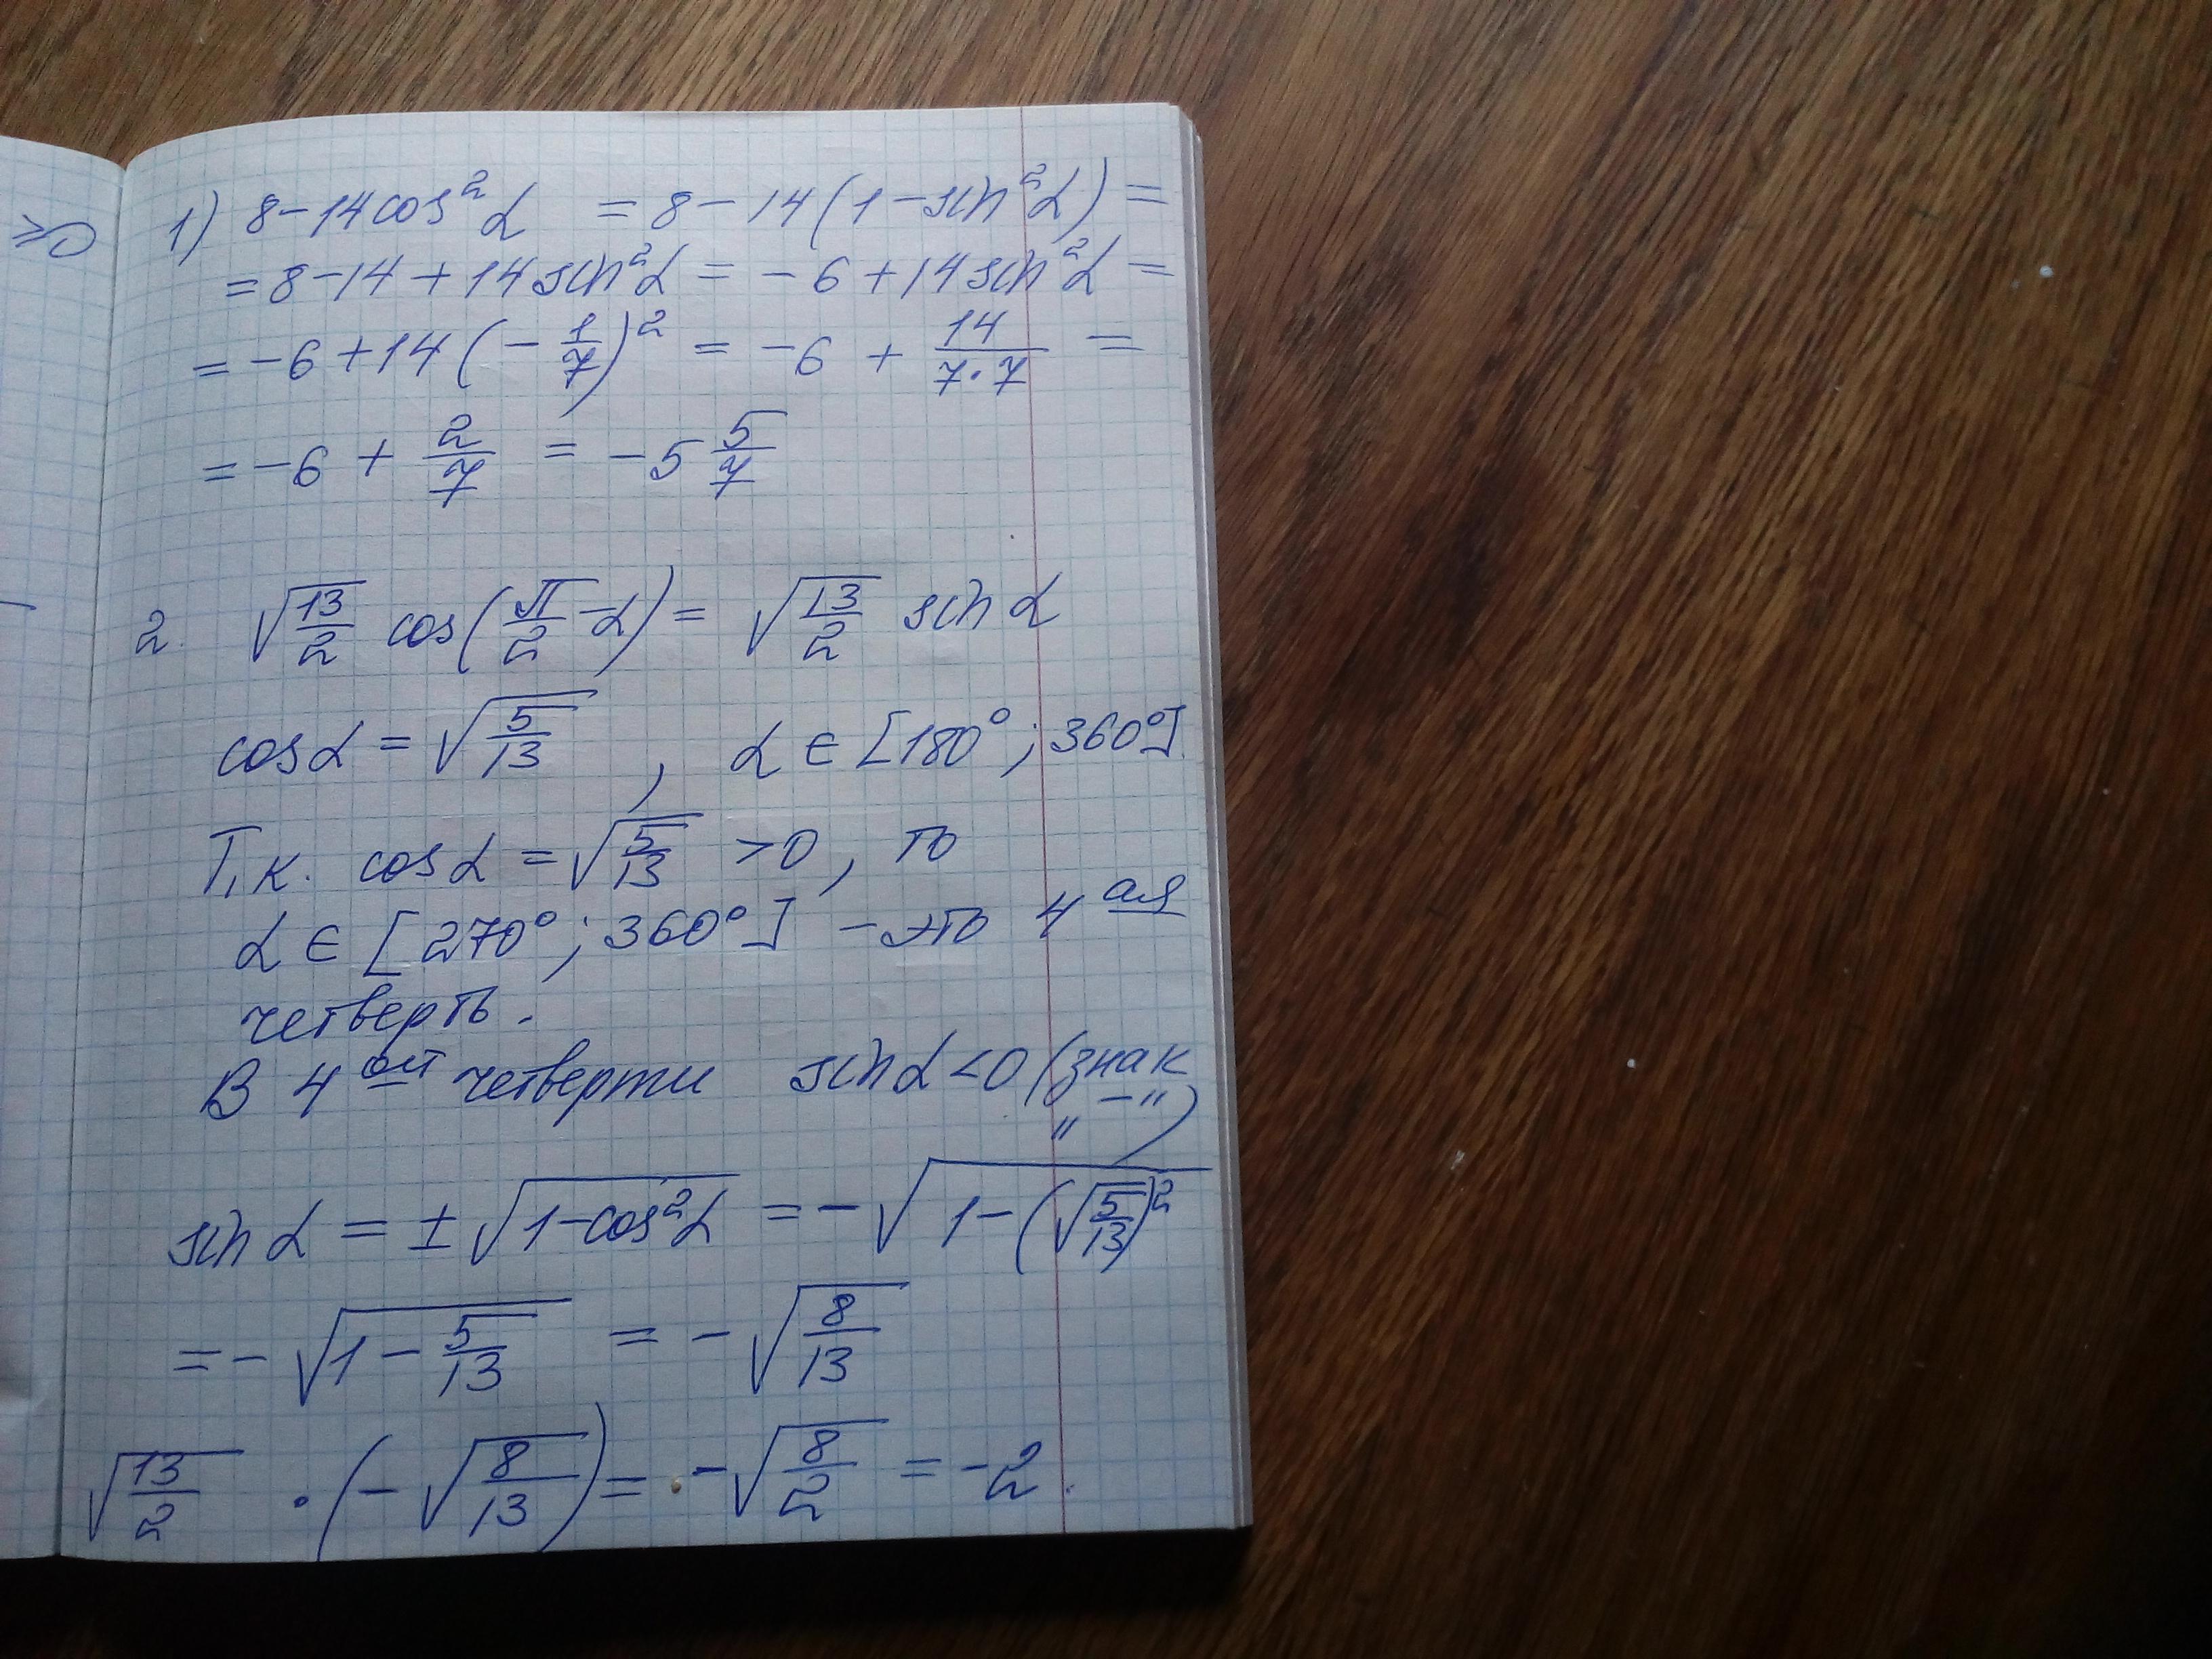 ≥0
1) 8-14cos²α = 8-14(1-sin²α)=
=8-14+14sin²α = -6+14sin²α=
=-6+14(-1/7)² = -6 + 14/(7·7) =
=-6 + 2/7 = -5 5/7
2. √(13/2) cos(π/2-α)= √(13/2) sin α
cosα = √(5/13) , α ∈ [180°; 360°].
Т.к. cosα = √(5/13) >0, то
α ∈ [270°; 360°] - это 4 ая
четверть.
В 4 ой четверти sinα<0 (знак
„-")
sin α = ±√(1-cos²α) = -√(1-(√(5/13))²
=-√(1-5/13) = -√(8/13)
√(13/2) · (-√(8/13)) = -√(8/2) = -2.